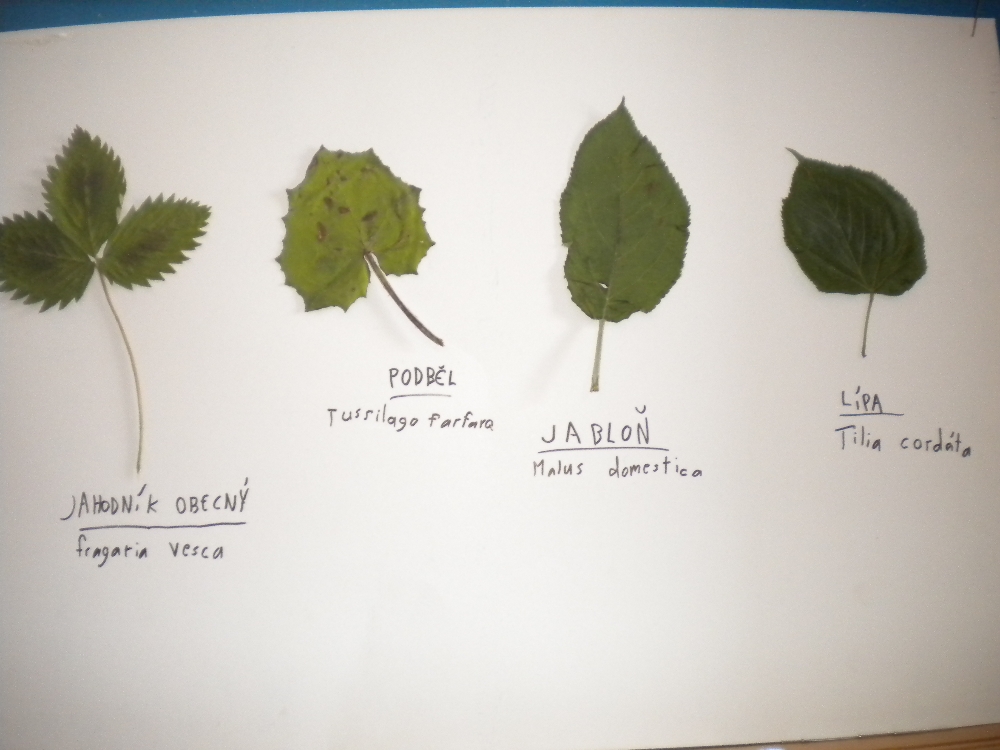 JAHODNÍK OBECNÝ
fragaria vesca
PODBĚL
Tussilago farfara
JABLOŇ
Malus domestica
LÍPA
Tilia cordáta